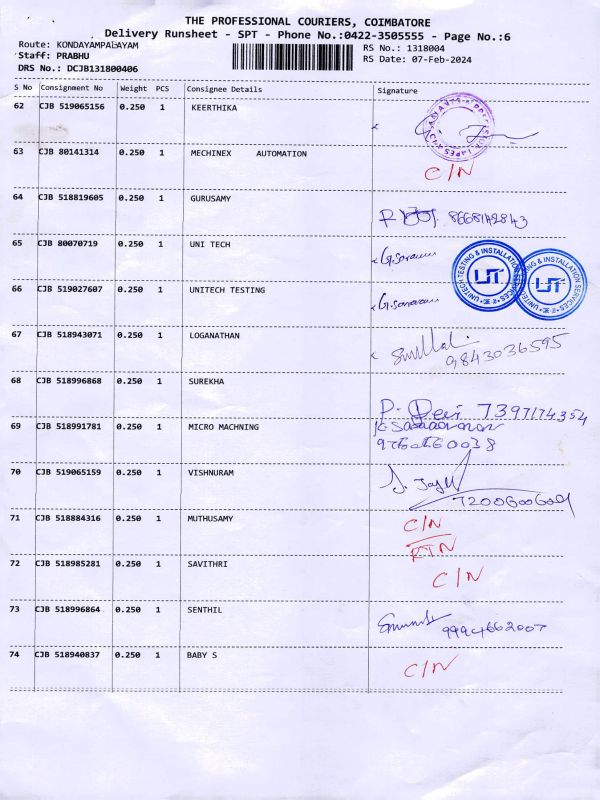 THE PROFESSIONAL COURIERS, COIMBATORE
Delivery Runsheet - SPT - Phone No.:0422-3505555 - Page No.:6
Route: KONDAYAMPALAYAM
Staff: PRABHU
DRS No.: DCJB131800406
RS No.: 1318004
RS Date: 07-Feb-2024
S No Consignment No Weight PCS Consignee Details Signature
62 CJB 519065156 0.250 1 KEERTHIKA
63 CJB 80141314 0.250 1 MECHINEX AUTOMATION C/N
64 CJB 518819605 0.250 1 GURUSAMY 8668142843
65 CJB 80070719 0.250 1 UNI TECH
UNITECH TESTING & INSTALLATION SERVICES
UIT
66 CJB 519027607 0.250 1 UNITECH TESTING
& INSTALLATION SERVICES
UIT
67 CJB 518943071 0.250 1 LOGANATHAN 9843036595
68 CJB 518996868 0.250 1 SUREKHA P. Devi 7397174354
69 CJB 518991781 0.250 1 MICRO MACHNING
70 CJB 519065159 0.250 1 VISHNURAM
71 CJB 518884316 0.250 1 MUTHUSAMY C/N
RTN
72 CJB 518985281 0.250 1 SAVITHRI C/N
73 CJB 518996864 0.250 1 SENTHIL 9994662007
74 CJB 518940837 0.250 1 BABY S C/N